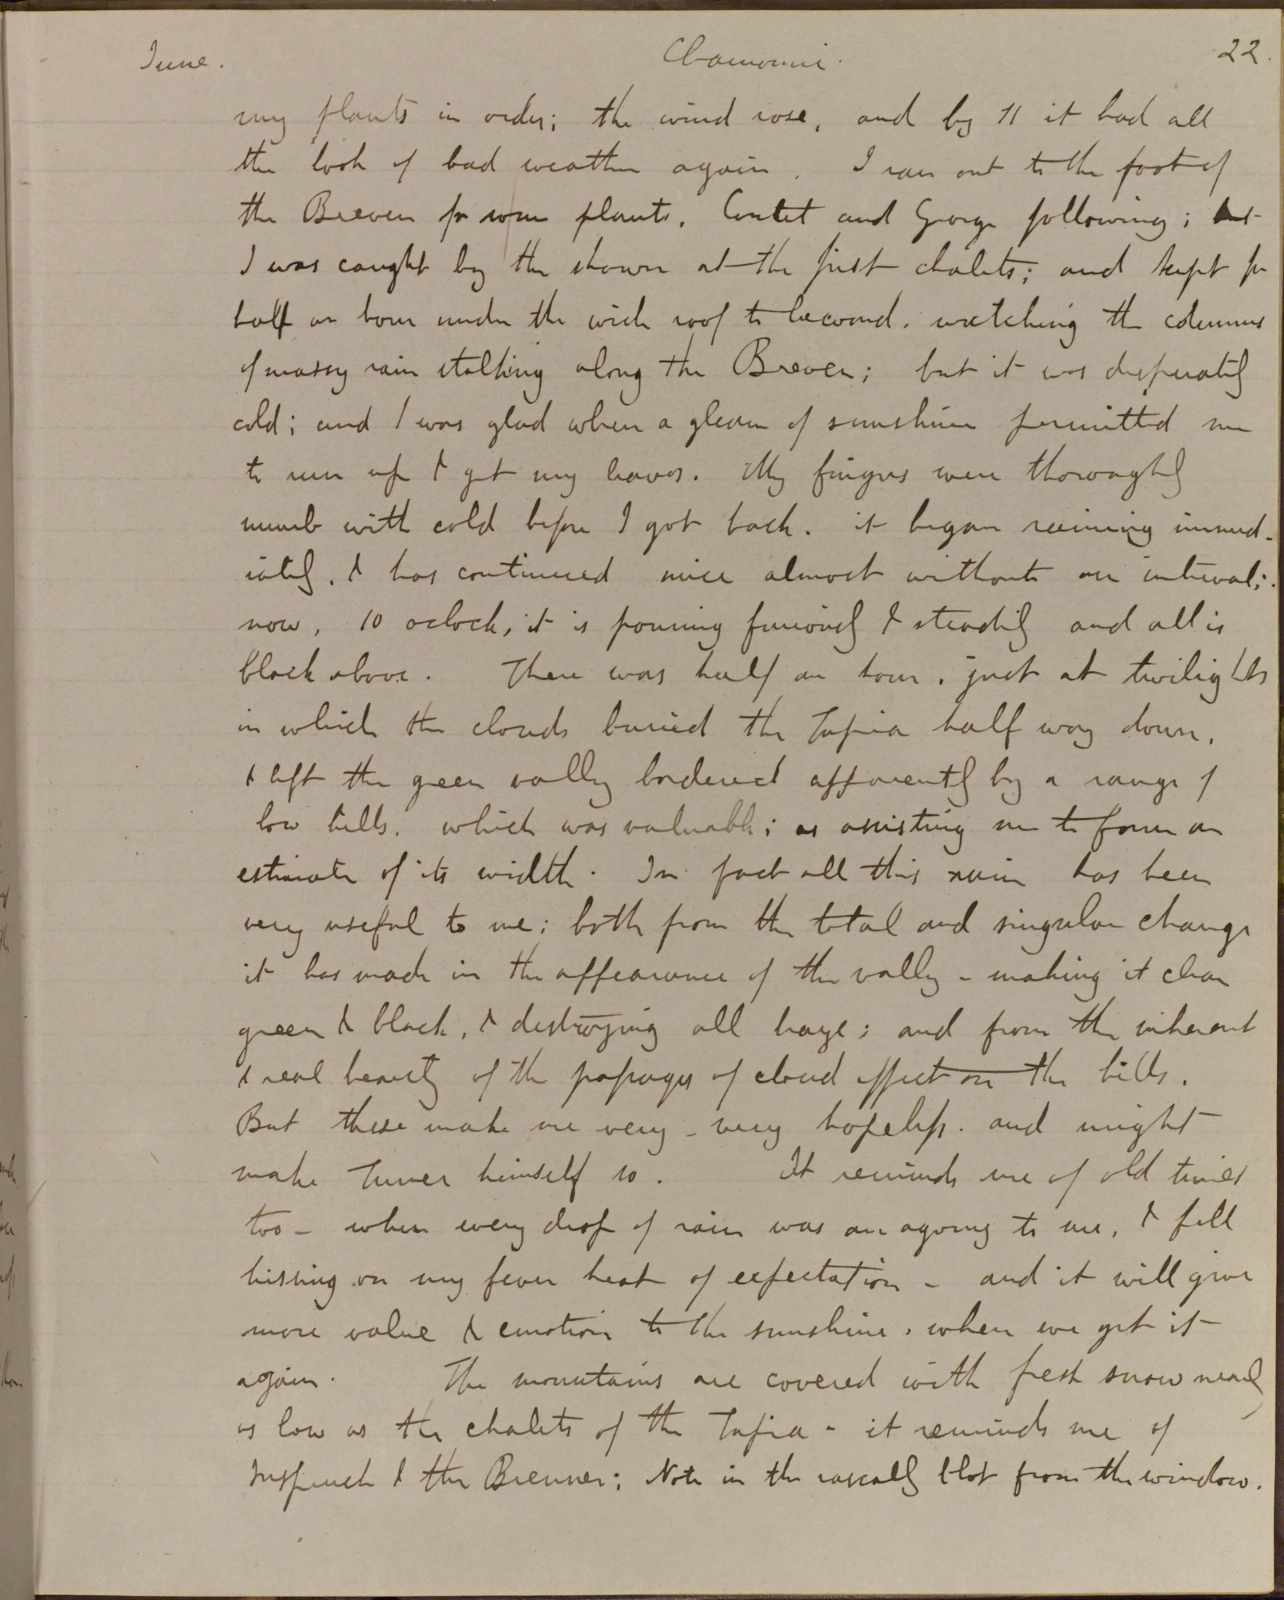 June. Chamouni. 22.
my plants in order; the wind rose, and by 11 it had all
the look of bad weather again. I ran out to the foot of
the Breven for some plants, Coutet and George following; but
I was caught by the shower at the first chalets; and kept for
half an hour under the wide roof to leeward, watching the columns
of massy rain stalking along the Breven; but it was desperately
cold; and I was glad when a gleam of sunshine permitted me
to run up & get my leaves. My fingers were thoroughly
numb with cold before I got back. it began raining immed-
iately, & has continued since almost without an interval;
now, 10 oclock, it is pouring furiously & steadily and all is
black above. There was half an hour, just at twilight
in which the clouds buried the Tapia half way down,
& left the green valley bordered apparently by a range of
low hills, which was valuable; as assisting me to form an
estimate of its width. In fact all this rain has been
very useful to me; both from the total and singular change
it has made in the appearance of the valley - making it clear
green & black, & destroying all haze; and from the inherent
& real beauty of the passages of cloud effect on the hills.
But these make me very - very hopeless. and might
make Turner himself so. It reminds me of old times
too - when every drop of rain was an agony to me, & fell
hissing on my fever heat of expectation - and it will give
more value & emotion to the sunshine, when we get it
again. The mountains are covered with fresh snow nearly
as low as the chalets of the Tapia - it reminds me of
Inspruck & the Brenner; Note in the rascally blot from the window.